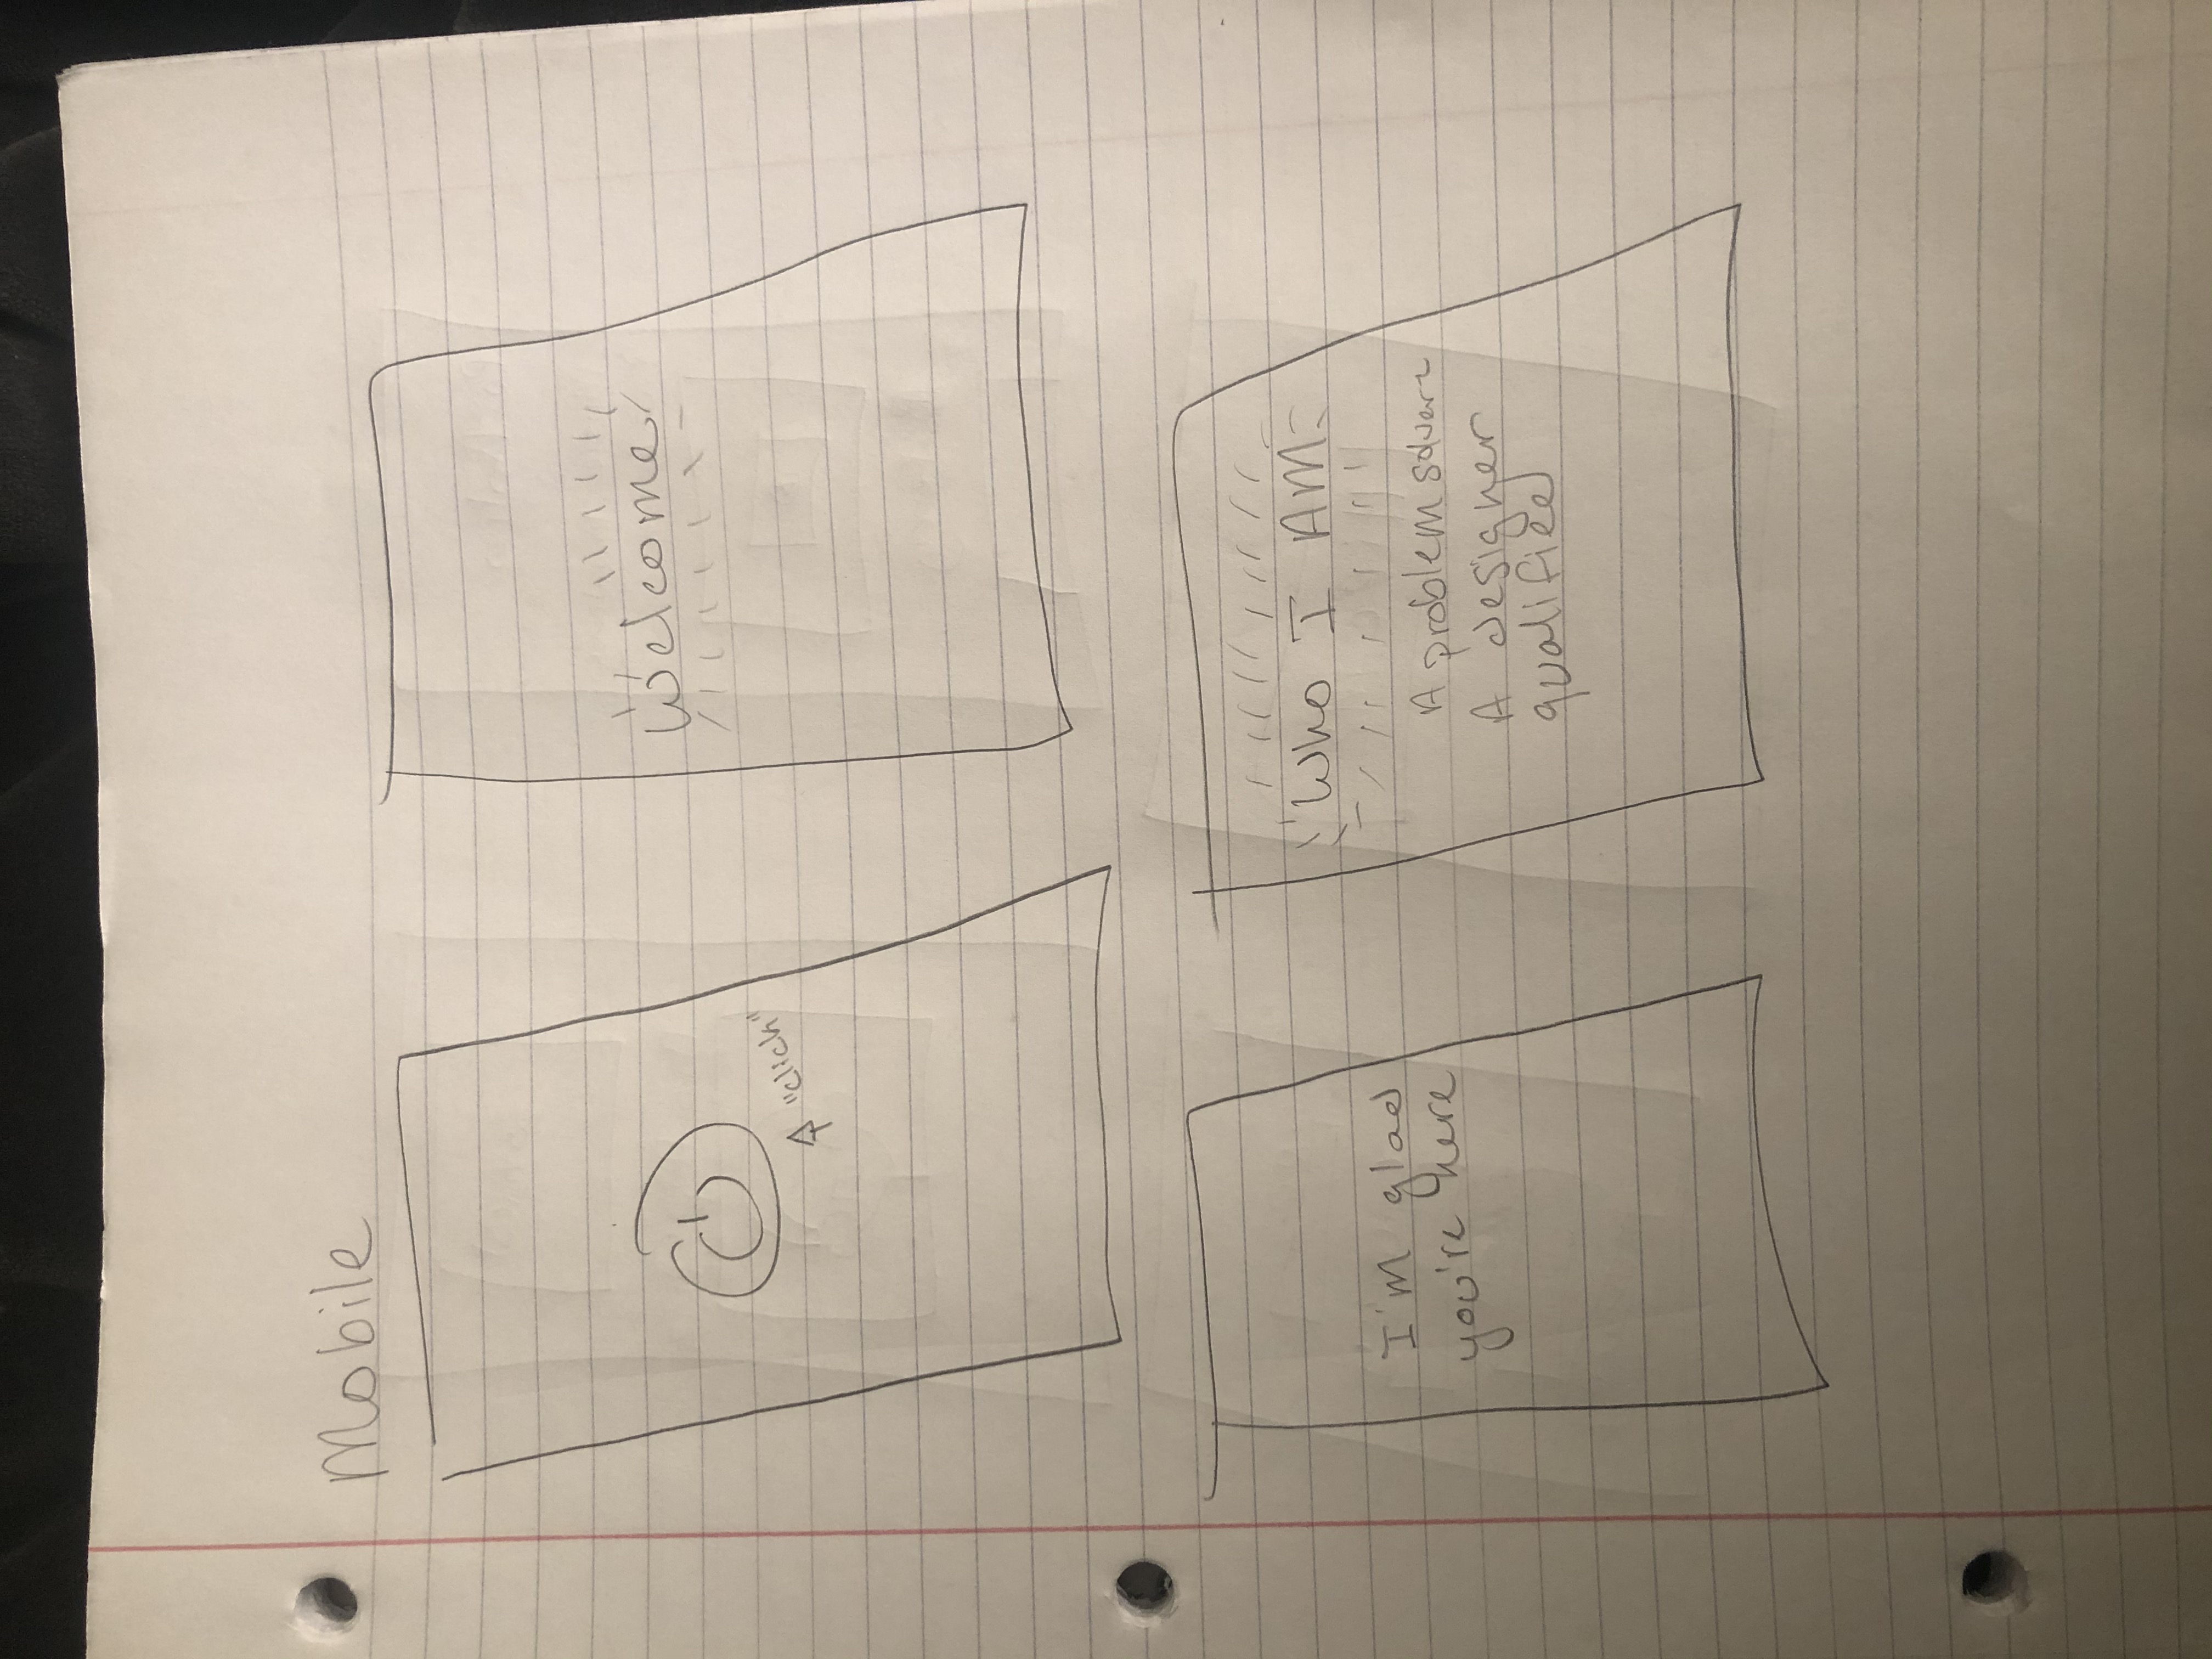 Mobile
"click"
Welcome
I'm glad
you're here
Who I AM
A problem solver
A designer
qualified